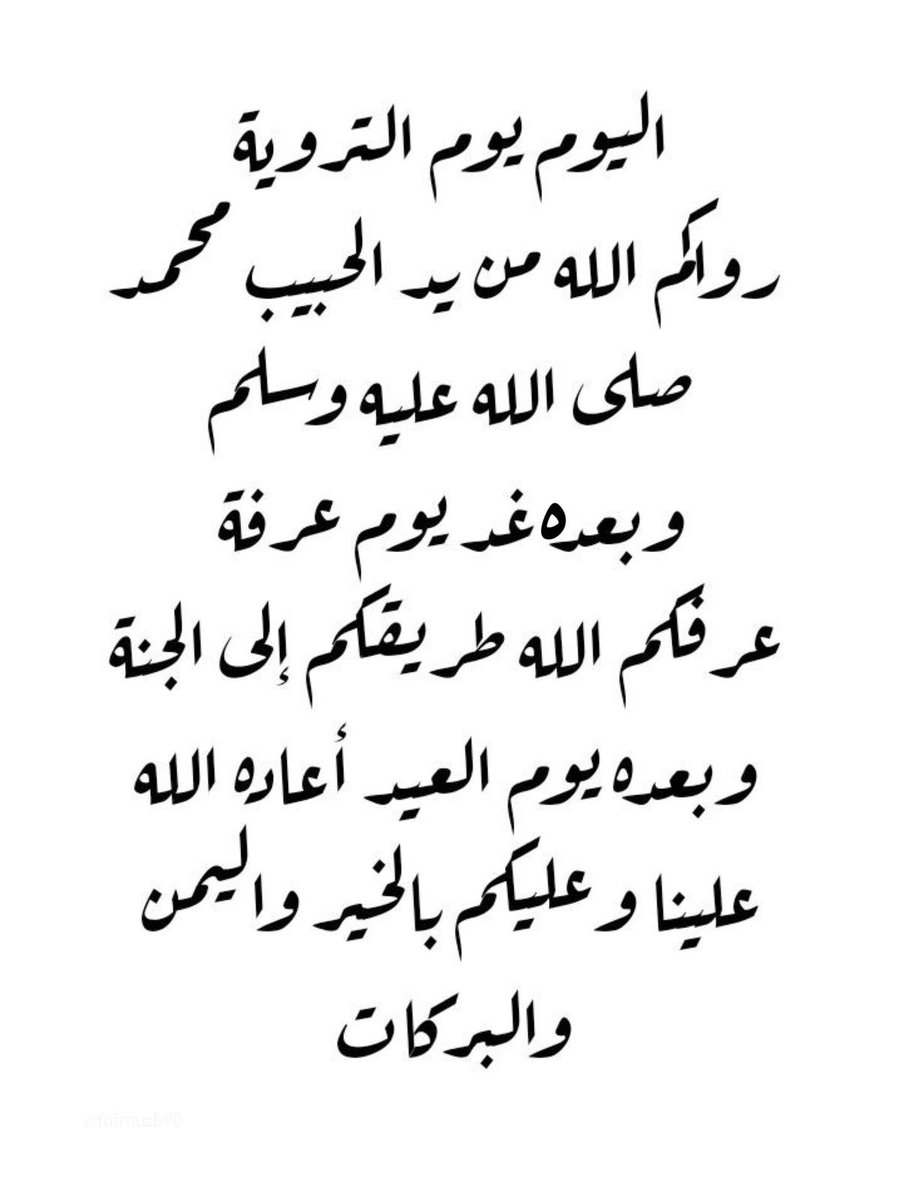 اليوم يوم التروية
رواكم الله من يد الحبيب محمد
صلى الله عليه وسلم
وبعده غد يوم عرفة
عرفكم الله طريقكم إلى الجنة
وبعده يوم العيد أعاده الله
علينا وعليكم بالخير واليمن
والبركات
@fairouzb90